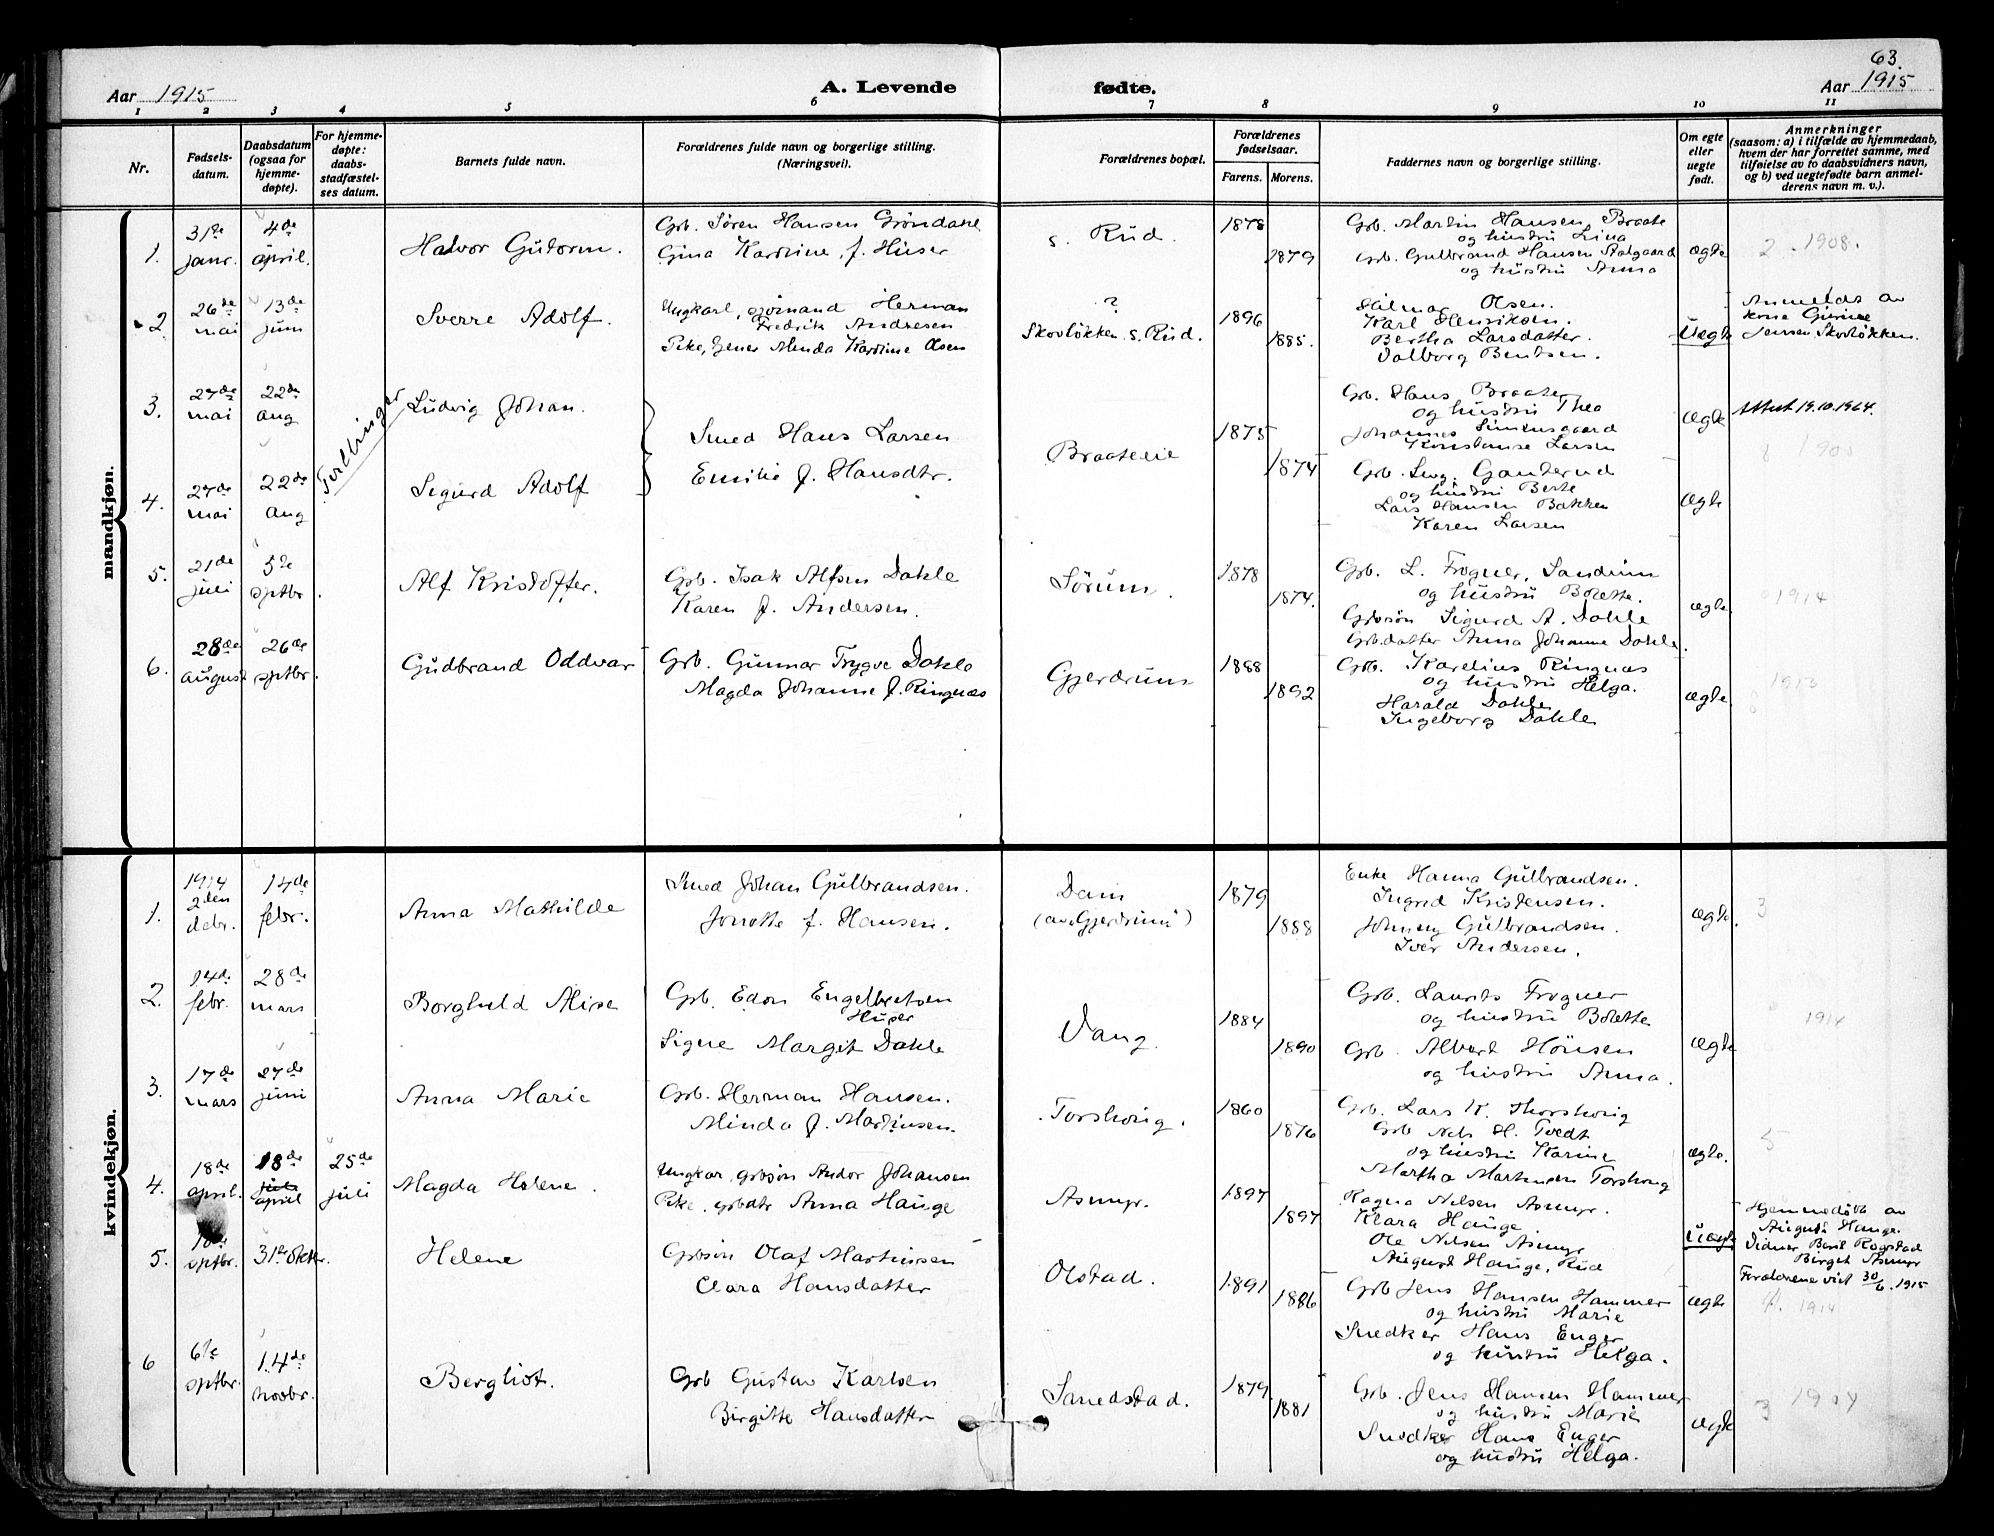 63.
Aar 1915
A. Levende
fødte.
Aar 1915
1 2 3 4 5 6 7 8 9 10 11
Nr.
Fødsels-
datum.
Daabsdatum
(ogsaa for
hjemme-
døpte).
For hjemme-
døpte:
daabs-
stadfæstel-
ses datum.
Barnets fulde navn.
Forældrenes fulde navn og borgerlige stilling.
(Næringsvei).
Forældrenes bopæl.
Forældrenes
fødselsaar.
Farens. Morens.
Faddernes navn og borgerlige stilling.
Om egte
eller
uegte
født.
Anmerkninger
(saasom: a) i tilfælde av hjemmedaab,
hvem der har forrettet samme, med
tilføielse av to daabsvidners navn,
og b) ved uegtefødte barn anmel-
derens navn m. v.).
mandkjøn.
1.
31te
janr.
4de
april.
Halvor Gutorm.
Grb. Søren Hansen Grøndahl
Gina Karoline, f. Huser
s. Rud.
1878
1879
Grb. Martin Hansen Braate
og hustru Lina
Grb. Gulbrand Hansen
og hustru Anna
ægte
2. 1908.
2.
26de
mai
13de
juni
Sverre Adolf.
Ungkarl, sjømand Herman
Fredrik Andresen
Pike, Minda Karoline Olsen
?
Skovløkken s. Rud.
1896
1885.
Hilmar Olsen.
Karl Henriksen.
Bertha Larsdatter.
Valborg Bentsen.
Uægte
Anmeldt av
kone Gurine
Jensen Skovløkken.
3.
27de
mai
22de
aug
Tvillinger
Ludvig Johan.
Smed Hans Larsen
Emilie f. Hansdtr.
Braateeie
1875
1874
Grb. Hans Braaten
og hustru Thea
Johannes Simensgaard
Konstanse Larsen
ægte
Attest 19.10.1964.
4.
27de
mai
22de
aug
Sigurd Adolf
Grb. Gauterud
og hustru Berte
Lars Hansen Bakken
Karen Larsen
ægte
5.
21de
juli
5te
sptbr.
Alf Kristoffer.
Grb. Isak Alfsen Dahle
Karen f. Andersen.
Sørum.
1878
1874.
Grb. L. Frogner, Sandum
og hustru Bolette.
Grbsøn Sigurd A. Dahle
Grbdatter Anna Johanne Dahle.
ægte
1914
6.
28de
august
26de
sptbr.
Gudbrand Oddvar
Grb. Gunnar Trygve Dahle
Magda Johanne f. Ringnæs
Gjerdrum
1888
1892
Grb. Karelius Ringnæs
og hustru Helga.
Harald Dahle
Ingeborg Dahle
ægte
1913
kvindekjøn.
1.
1914
2den
debr.
14de
febr.
Anna Mathilde
Smed Johan Gulbrandsen.
Jonette f. Hansen.
Dam
(av Gjerdrum)
1879
1888
Enke Hanna Gulbrandsen.
Ingrid Kristensen.
Johnny Gulbrandsen.
Iver Andersen.
ægte
3
2.
14de
febr.
28de
mars
Borghild Alise
Grb. Edon Engelbretsen
Huser
Signe Margit Dahle
Vang.
1884
1890
Grb. Laurits Frogner
og hustru Bolette
Grb. Albert Hønsen
og hustru Anna.
ægte
1914
3.
17de
mars
27de
juni
Anna Marie
Grb. Herman Hansen.
Minda f. Martinsen.
Torshoug.
1860
1876
Grb. Lars K. Thorshoug
Grb Nels H. Tvedt
og hustru Karine
Martha Martinsen Torshoug
ægte.
5
4.
18de
april.
18de
juli
april
25de
juli
Magda Helene.
Ungkar, grbsøn Andor Johansen
Pike, grbdtr Anna Hauge
Asmyr.
1897
1897
Ragna Nilsen Asmyr.
Klara Hauge.
Ole Nilsen Asmyr
August Hauge, Rud
Uægte
Hjemmedøbt av
Augusta Hauge.
Vidner Berit Rogstad
Birgit Asmyr
Forældrene viet 30/6. 1915
5.
sptbr.
31te oktbr.
Helene
Grbsøn Olaf Martinsen
Clara Hansdatter
Olstad.
1891
1886
Grb Jens Hansen Hammer
og hustru Marie
Snedker Hans Enger
og hustru Helga.
ægte
4. 1914
6
6te
sptbr.
14de
novbr.
Bergliot.
Grb Gustav Karlsen
Birgitte Hansdatter
Smedstad.
1879
1881
Grb. Jens Hansen Hammer
og hustru Marie
Snedker Hans Enger
og hustru Helga.
ægte
3 1904